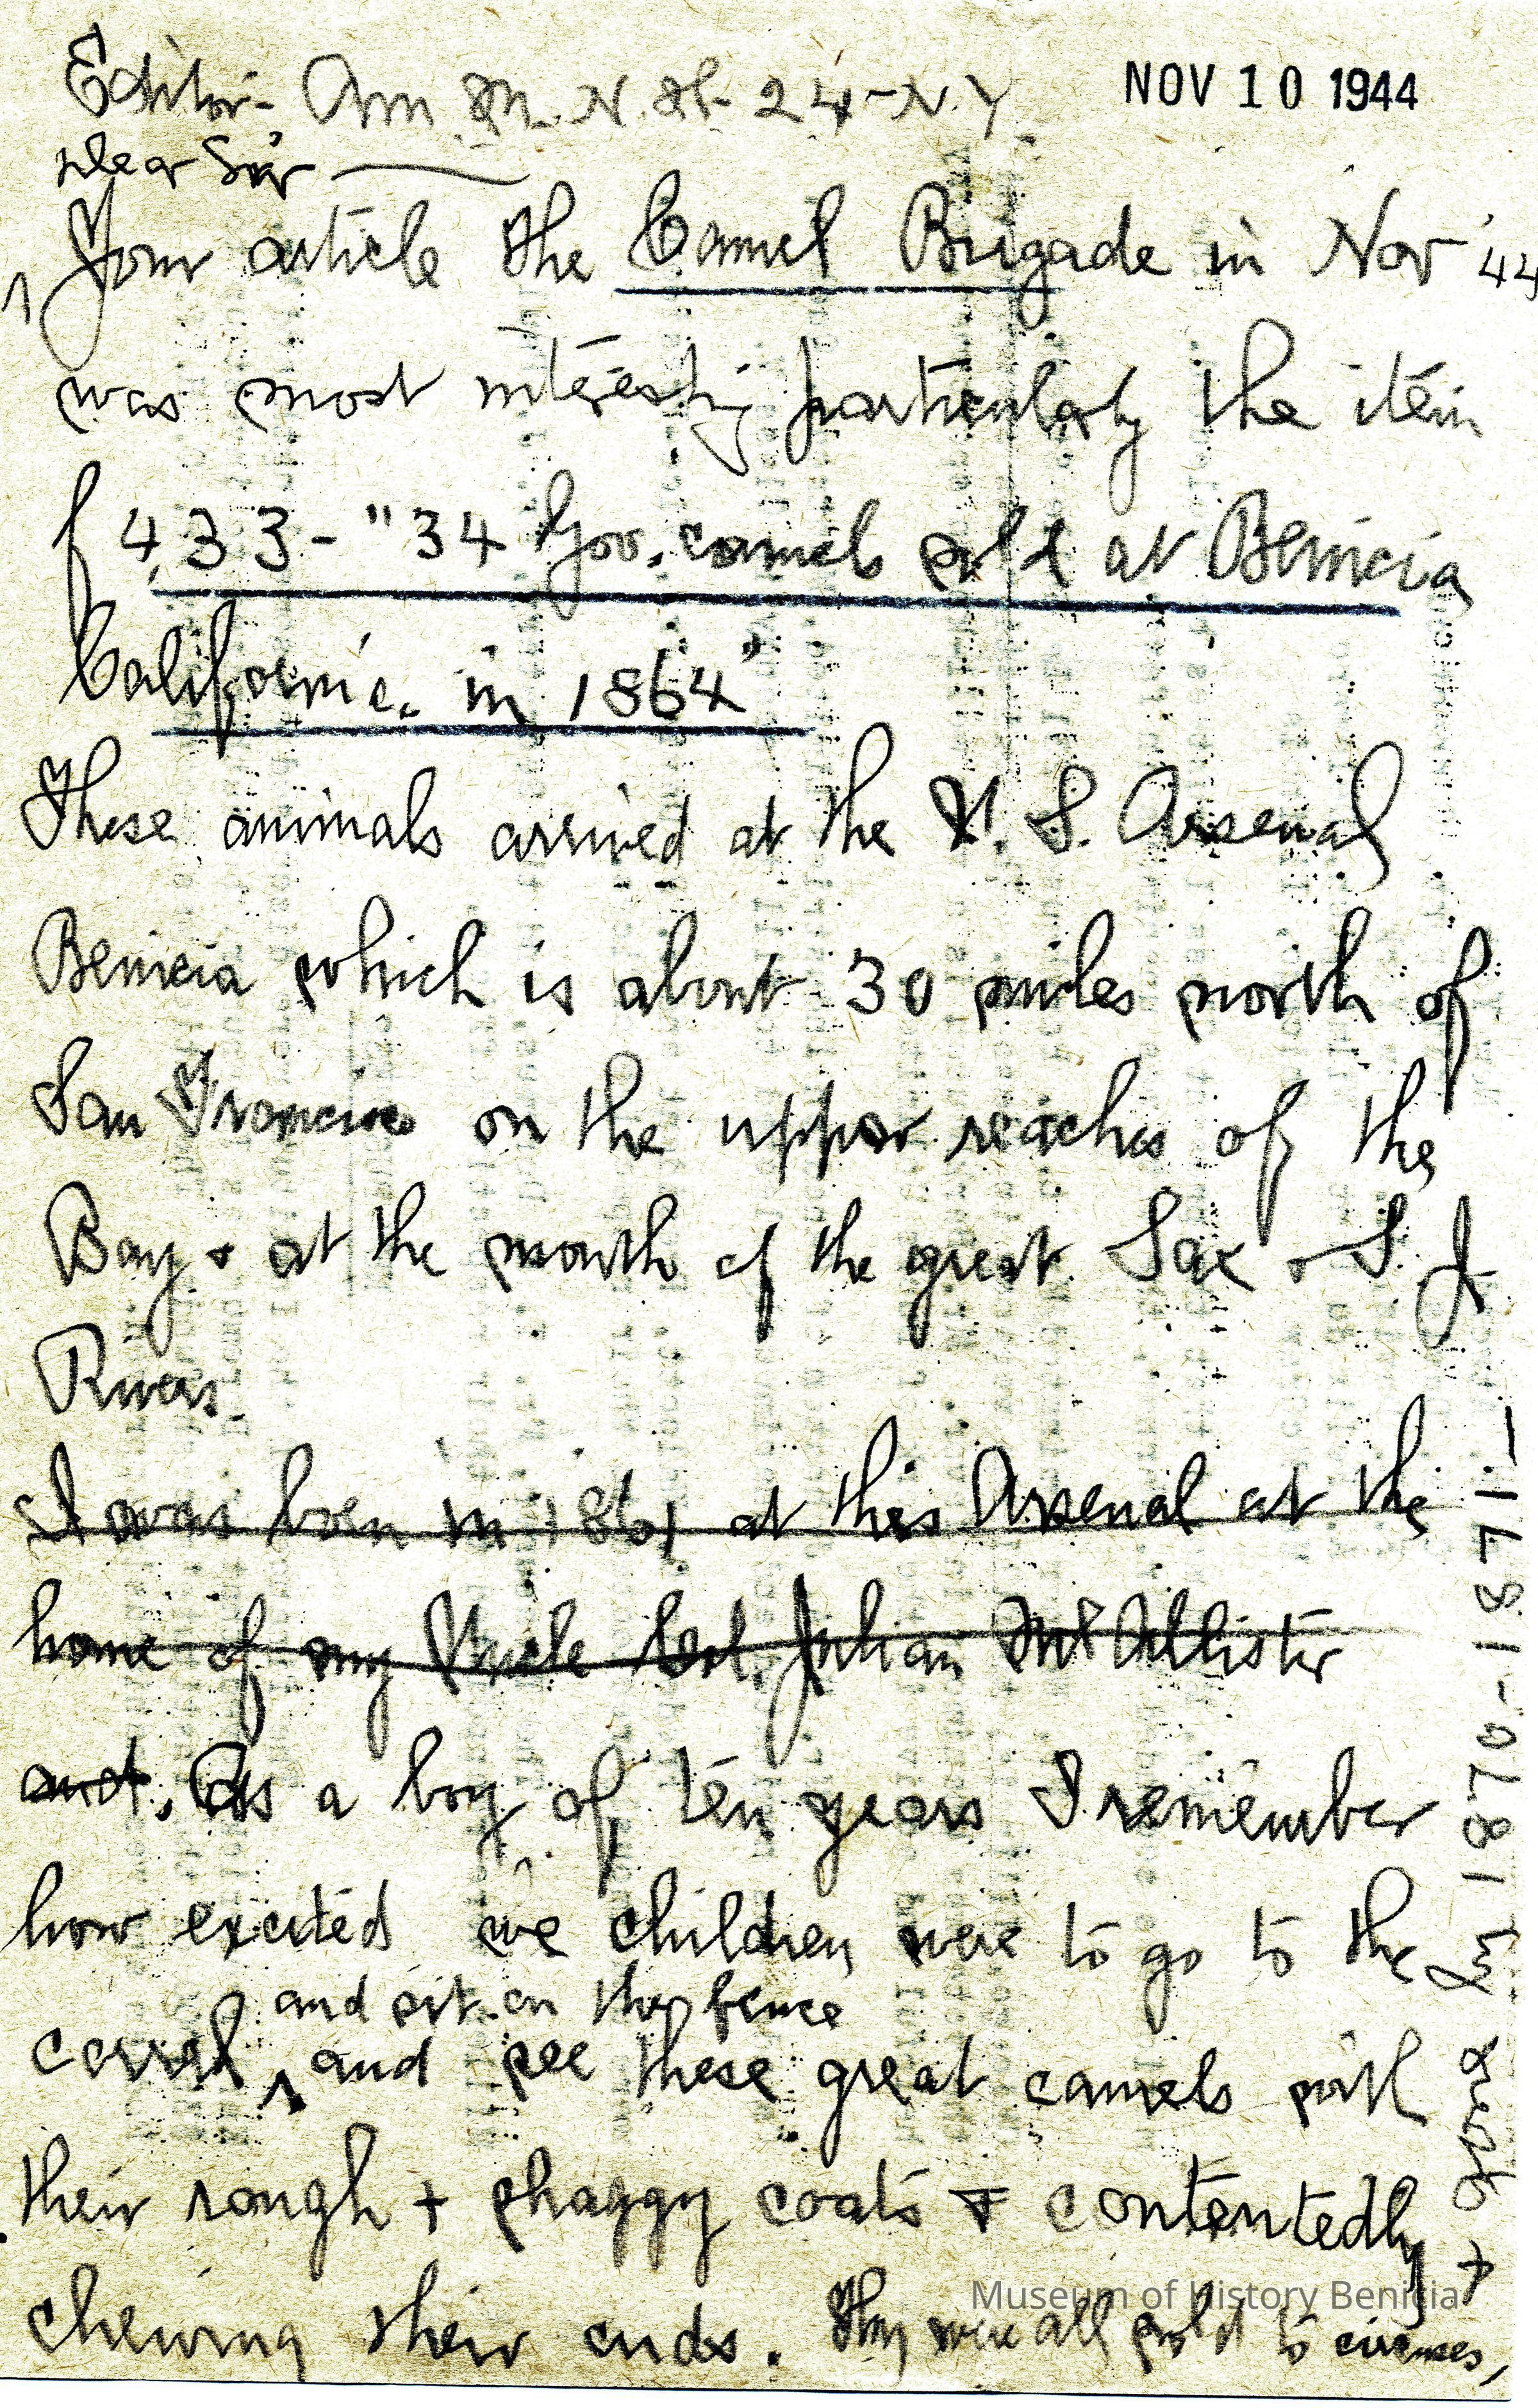 Editor - Am. M. N. H. - 24 - N.Y.
NOV 10 1944
Dear Sir
Your article the Camel Brigade in Nov '44
was most interesting particularly the item
f 433 - "34 Gov. camels sold at Benicia
California. in 1864"
These animals arrived at the U. S. Arsenal
Benicia which is about 30 miles north of
San Francisco on the upper reaches of the
Bay + at the mouth of the great Sac + S. J
Rivers.
I was born in 1861 at this Arsenal at the
home of my Uncle Col. Julian McAllister
and. As a boy of ten years I remember
how excited we children were to go to the
and sit on the fence
corral, and see these great camels with
their rough + shaggy coats + contentedly
chewing their cuds. They were all sold to circuses,
in 1870-1871-
Museum of History Benicia